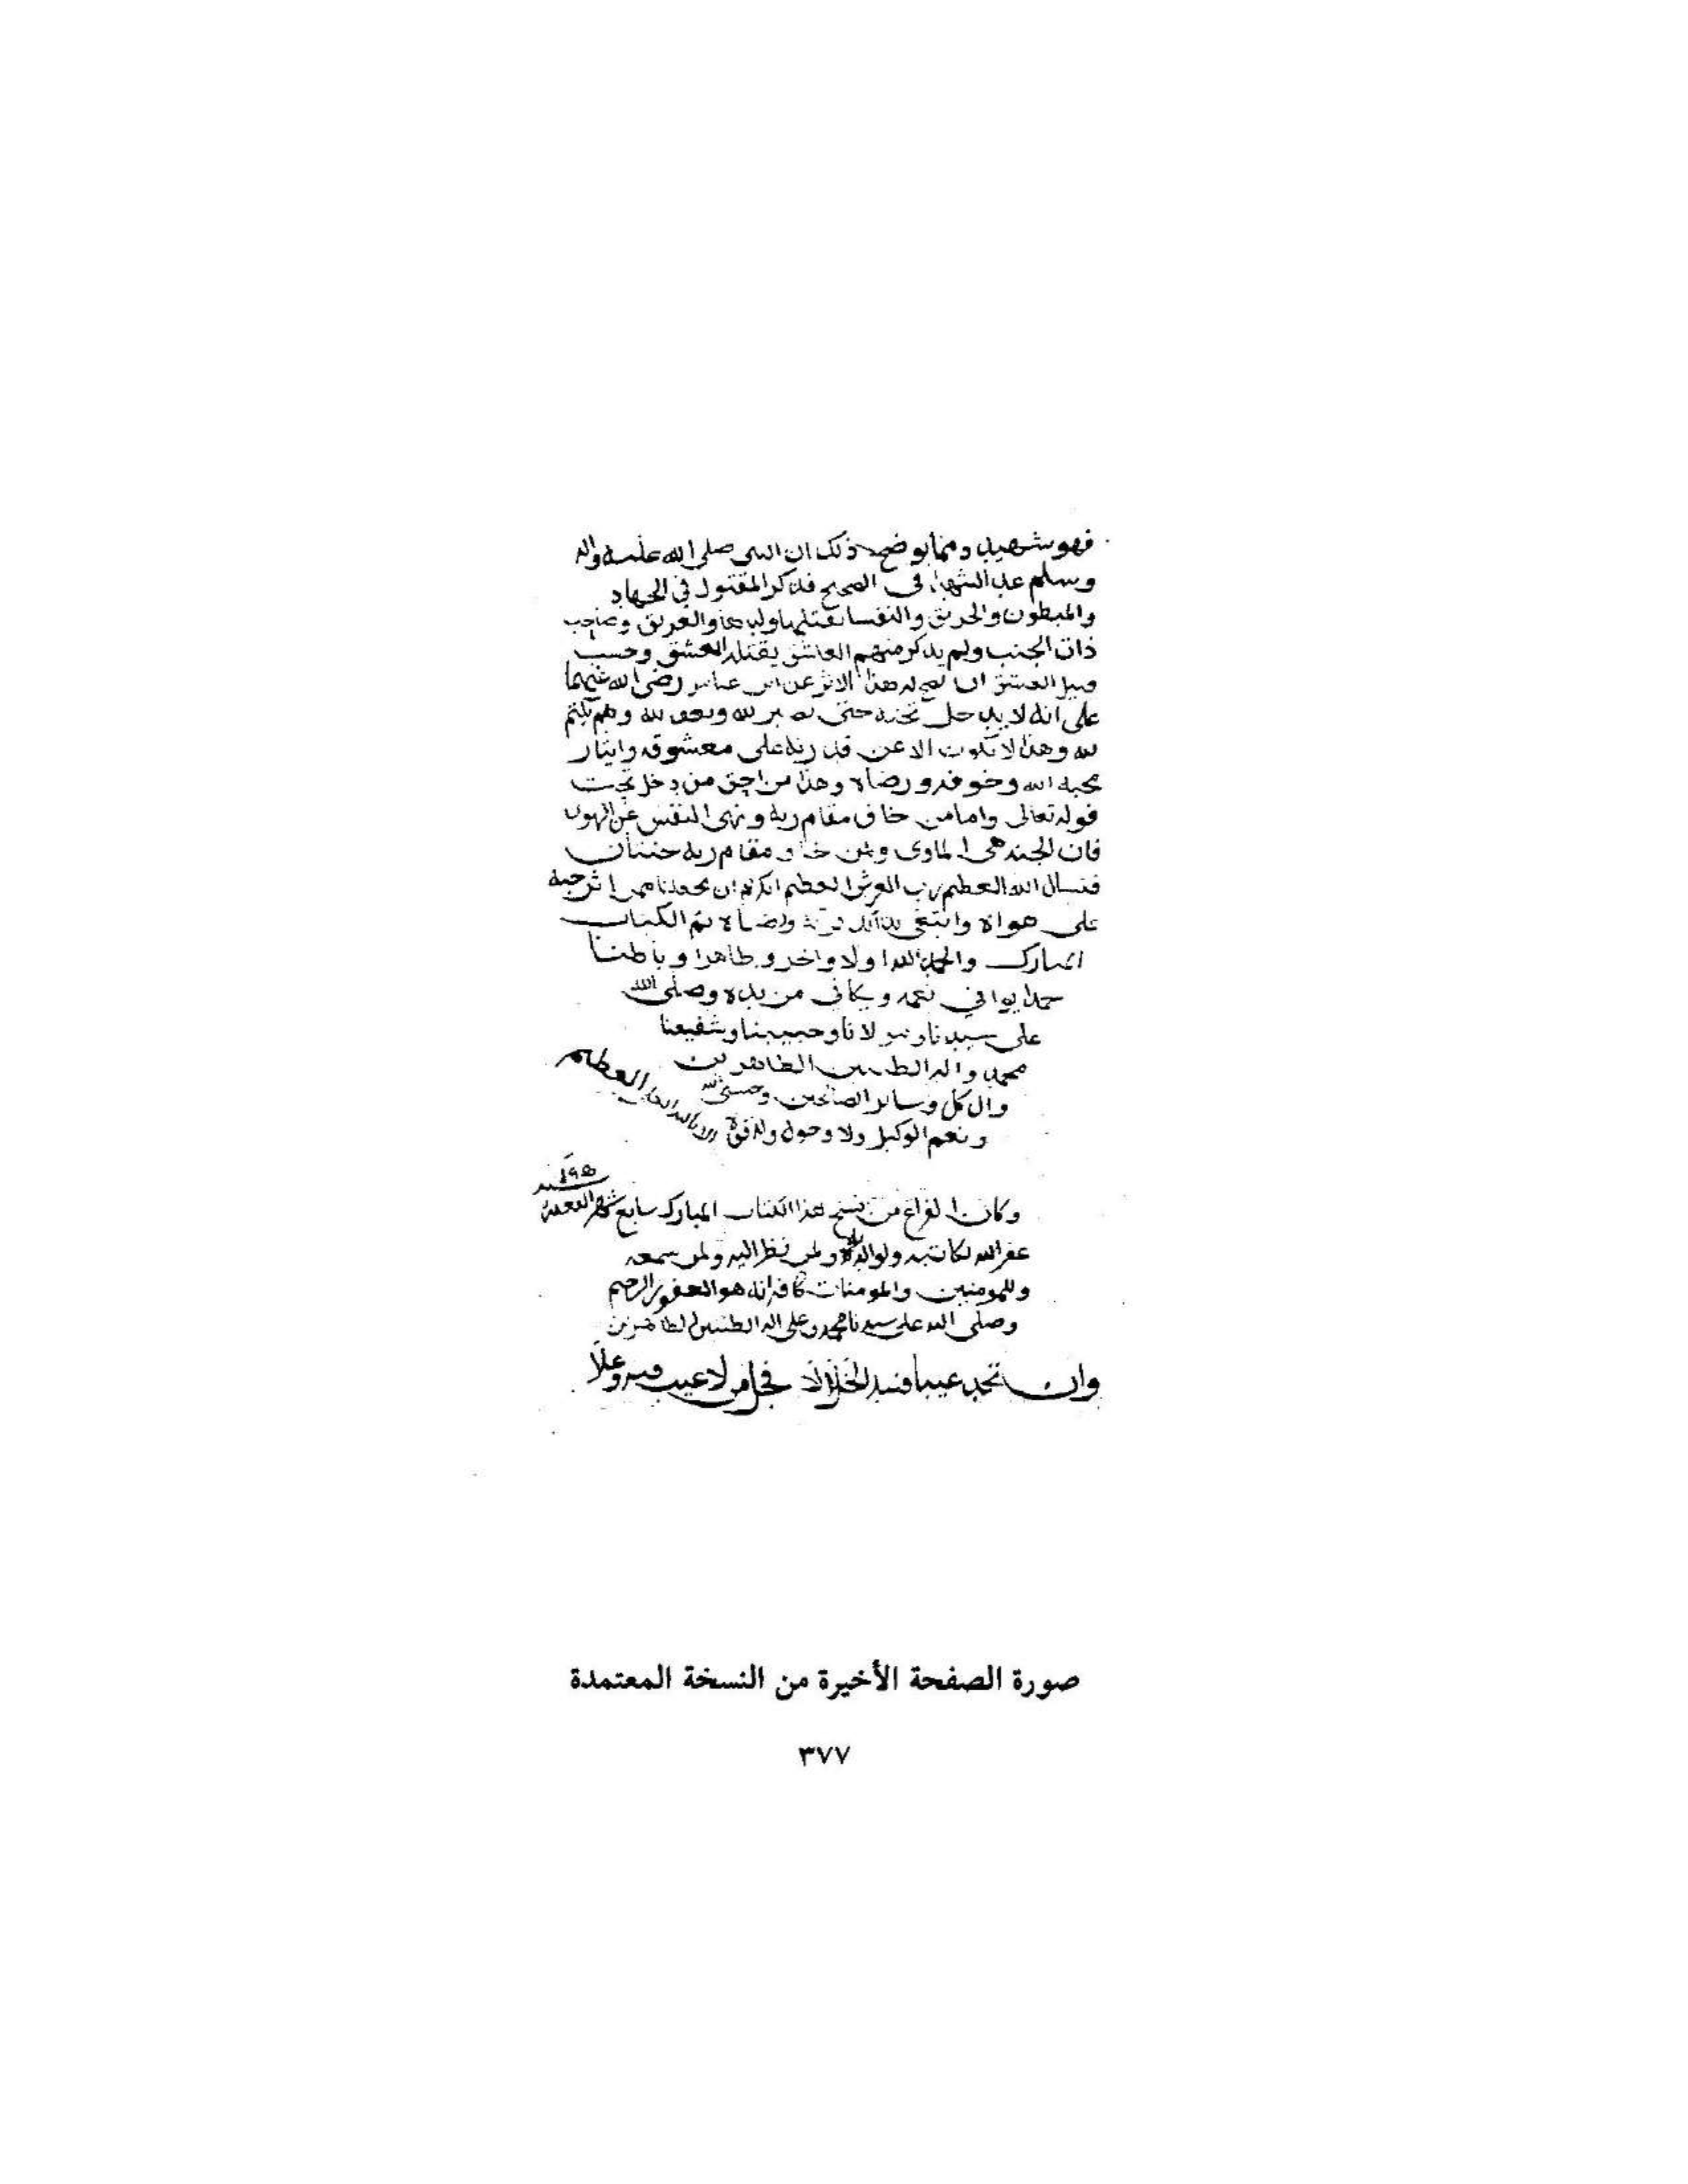 فهو شهيد ومما يوضح ذلك ان النبي صلى الله عليه واله
وسلم عد الشهدا في الصحيح فذكر المقتول في الجهاد
والمبطون والحريق والنفسا يقتلها ولدها والغريق وصاحب
ذات الجنب ولم يذكر منهم العاشق يقتله العشق وحسب
قتيل العشق ان يصح له هذا الاثر عن ابن عباس رضي الله عنهما
على انه لا يدخل تحته حتى يصبر لله ويعف لله ويكتم
لله وهذا لا يكون الا عن قدرته على معشوقه وايثار
محبة الله وخوفه ورضاه وهذا من احق من دخل تحت
قوله تعالى واما من خاف مقام ربه ونهى النفس عن الهوى
فان الجنه هي الماوى ولمن خاف مقام ربه جنتان
فنسال الله العظيم رب العرش العظيم الكريم ان يجعلنا ممن اثر حبه
على هواه وابتغى بذلك قربه ورضاه تم الكتاب
المبارك والحمد لله اولا واخرا وظاهرا وباطنا
حمدا يوافي نعمه ويكافي مزيده وصلى الله
على سيدنا ومولانا وحبيبنا وشفيعنا
محمد واله الطيبين الطاهرين
وال كل وسائر الصالحين وحسبي الله
ونعم الوكيل ولا حول ولا قوة الا بالله العلي العظيم
وكان الفراغ من نسخ هذا الكتاب المبارك سابع شهر القعدة سنة
غفر الله لكاتبه ولوالديه ولمن نظر اليه ولمن سمعه
وللمومنين والمومنات كافة انه هو الغفور الرحيم
وصلى الله على سيدنا محمد وعلى اله الطيبين الطاهرين
وان تجد عيبا فسد الخللا فجل من لا عيب فيه وعلا
صورة الصفحة الأخيرة من النسخة المعتمدة
٣٧٧